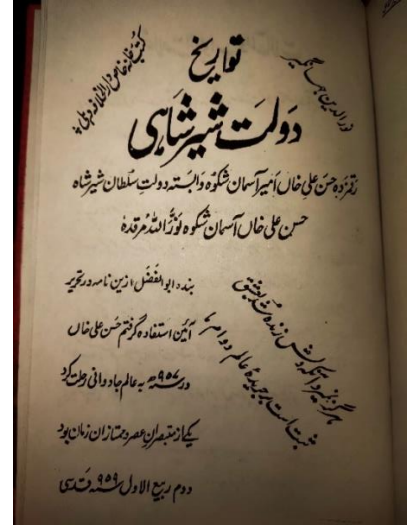 کتب خانہ خاص دارالخلافہ دہلی
نورالدین جہانگیر
تواریخ
دولت شیر شاہی
رقمزدہ حسن علی خاں امیر آسمان شکوہ وابستہ دولت سلطان شیر شاہ
حسن علی خاں آسمان شکوہ نور اللہ مرقدہ
بندہ ابوالفضل ازین نامہ در تحریر
آئین استفادہ گرفتم حسن علی خاں
در سنہ ۹۵۷ھ بہ عالم جادوانی رحلت کرد
یکے از متبصران عصر و ممتازان زمان بود
دوم ربیع الاول سنہ ۹۵۹ قدسی
ہرگز نمیرد آنکہ دلش زندہ شد بعشق
ثبت است بر جریدہ عالم دوام ما